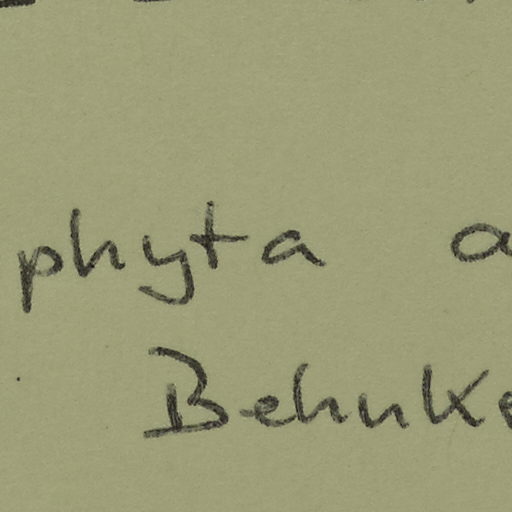 phyta a
Behnke